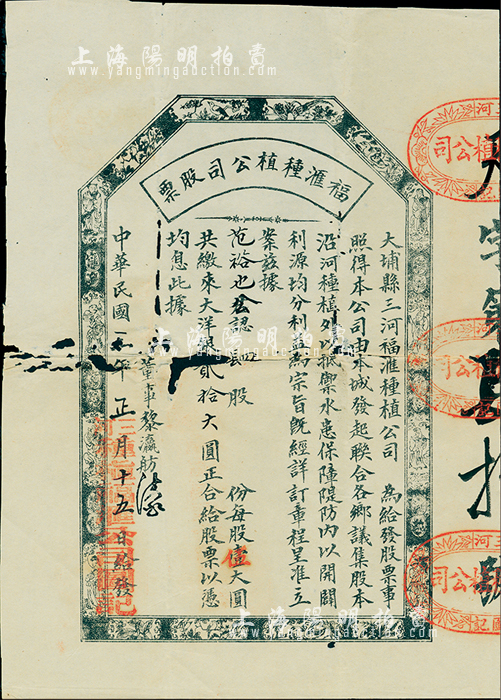 上海陽明拍賣
www.yangmingauction.com
福滙種植公司股票
大埔縣三河福滙種植公司 為給發股票事
照得本公司由本城發起聯合各鄉議集股本
沿河種植以抵禦水患保障隄防內以開闢
利源均分利為宗旨既經詳訂章程呈准立
案茲據
范裕也 認 股 份每股壹大圓
共繳來大洋銀貳拾大圓正合給股票以憑
均息此據
董事黎瀛舫
中華民國 年正月十五日給發
字第 拾 號
三河
種植公司
圖記
上海陽明拍賣
www.yangmingauction.com
上海陽明拍賣
www.yangmingauction.com